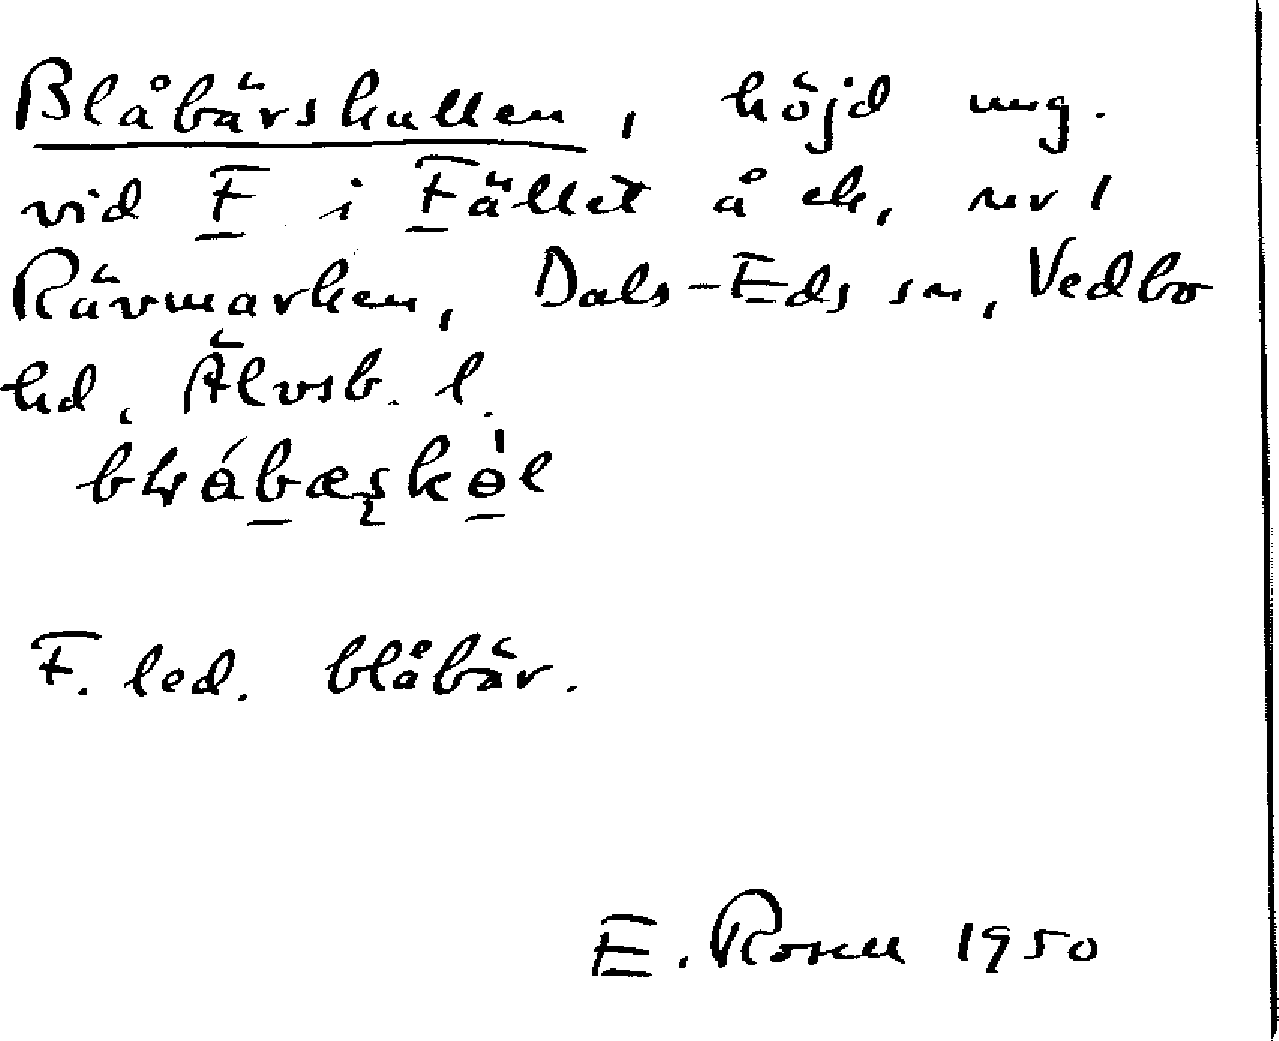 Blåbärskullen, höjd ung.
vid F i Fället å ek, nr 1
Rävmarken, Dals-Eds sn, Vedbo
hd, Älvsb. l.
F. led. blåbär.
E. Rosell 1950